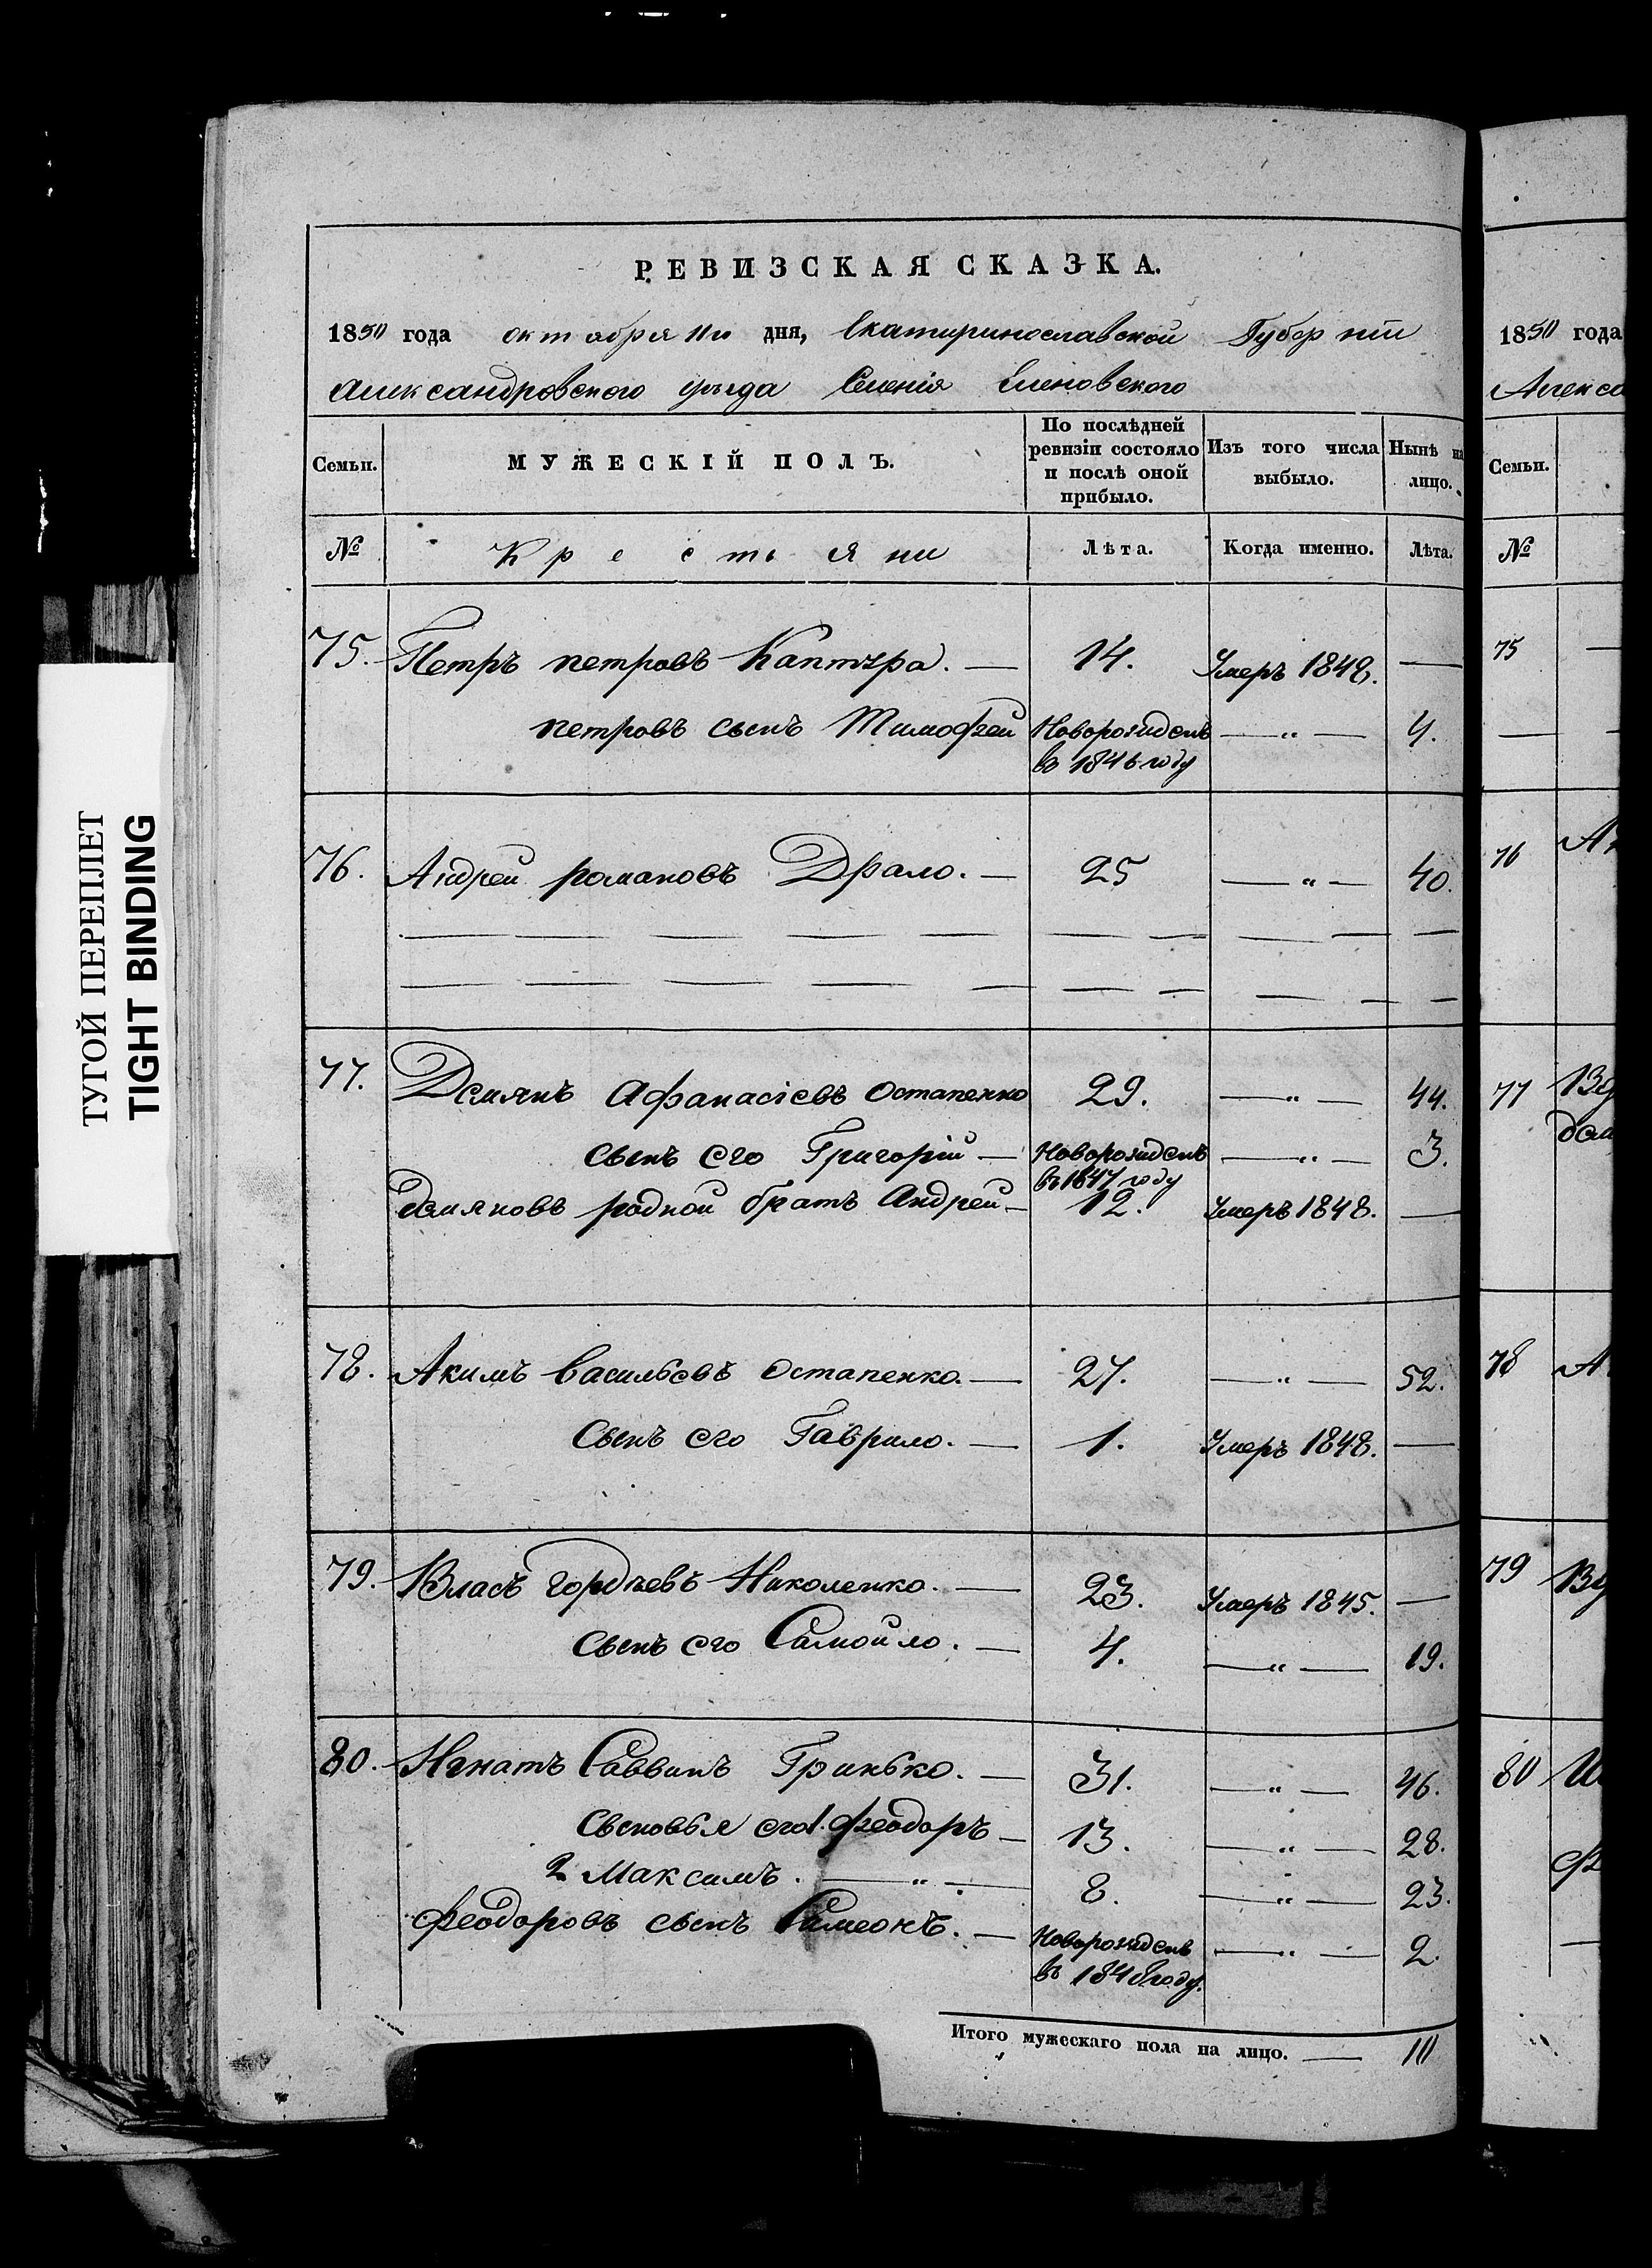 ТУГОЙ ПЕРЕПЛЕТ
TIGHT BINDING
РЕВИЗСКАЯ СКАЗКА.
1850 года октября 10 дня, Екатиринославской Губерніи
Александровского уъзда Селенія Еленовского
Семьи. МУЖЕСКІЙ ПОЛЪ. По послѣдней ревизіи состояло и послѣ оной прибыло. Изъ того числа выбыло. Нынѣ на лицо.
№ Крестьяни Лѣта. Когда именно. Лѣта.
75. Петръ петровъ Каптяра. — 14. Умеръ 1848. —
петровъ сынъ Тимофѣй Новорожденъ въ 1846 году —„— 4.
76. Андрей романовъ Драло. — 25 —„— 40.
77. Демянъ Афанасіевъ Остапенко 29. —„— 44.
сынъ его Григорій — Новорожденъ въ 1847 году —„— 3.
демяновъ родной братъ Андрей — 12. Умеръ 1848. —
78. Акимъ васильевъ Остапенко. — 27. —„— 52.
Сынъ его Гаврило. — 1. Умеръ 1848. —
79. Власъ гордѣевъ Николенко. — 23. Умеръ 1845. —
Сынъ его Самойло. — 4. —„— 19.
80. Игнатъ Саввинъ Гринько. — 31. —„— 46.
Сыновья его 1. феодоръ — 13. —„— 28.
2 Максимъ. —„— 8. —„— 23.
феодоровъ сынъ Симеонъ. — Новорожденъ въ 1848 году. —„— 2.
Итого мужескаго пола на лицо. — 10
1850 года
Алекса
Семьи.
№
75 —
76
77
78
79
80